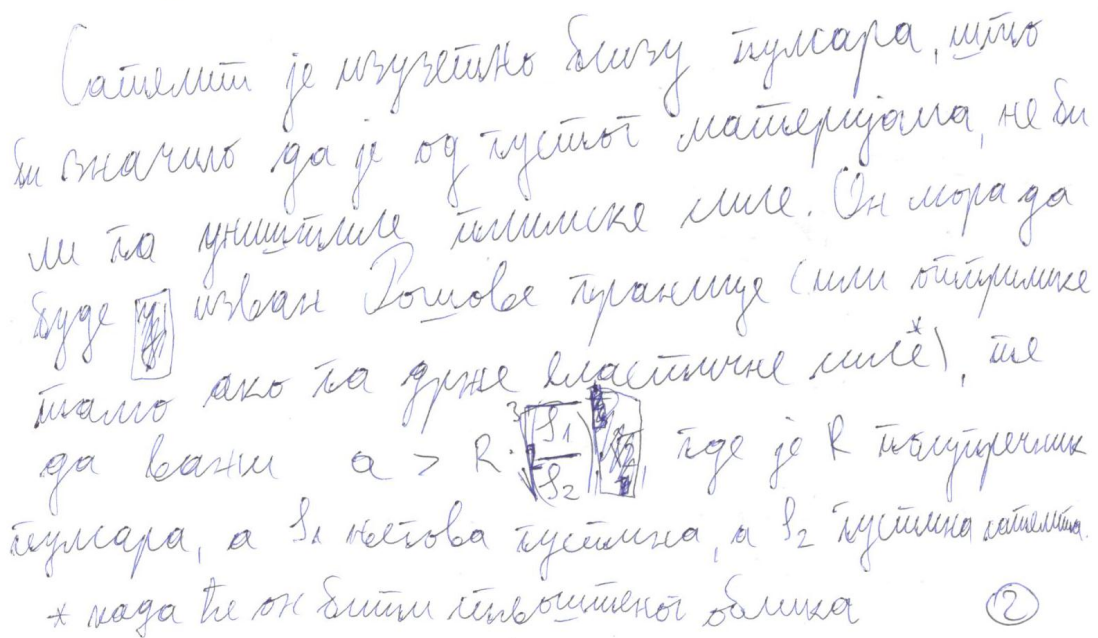 Сателит је изузетно близу пулсара, што
би значило да је од густог материјала, не би
ли га уништиле плимске силе. Он мора да
буде изван Рошове границе (или отприлике
тамо ако га држе еластичне силе*), те
да важи a > R·∛(ρ₁/ρ₂) где је R полупречник
пулсара, а ρ₁ његова густина, а ρ₂ густина сателита.
* када ће он бити спљоштеног облика ②